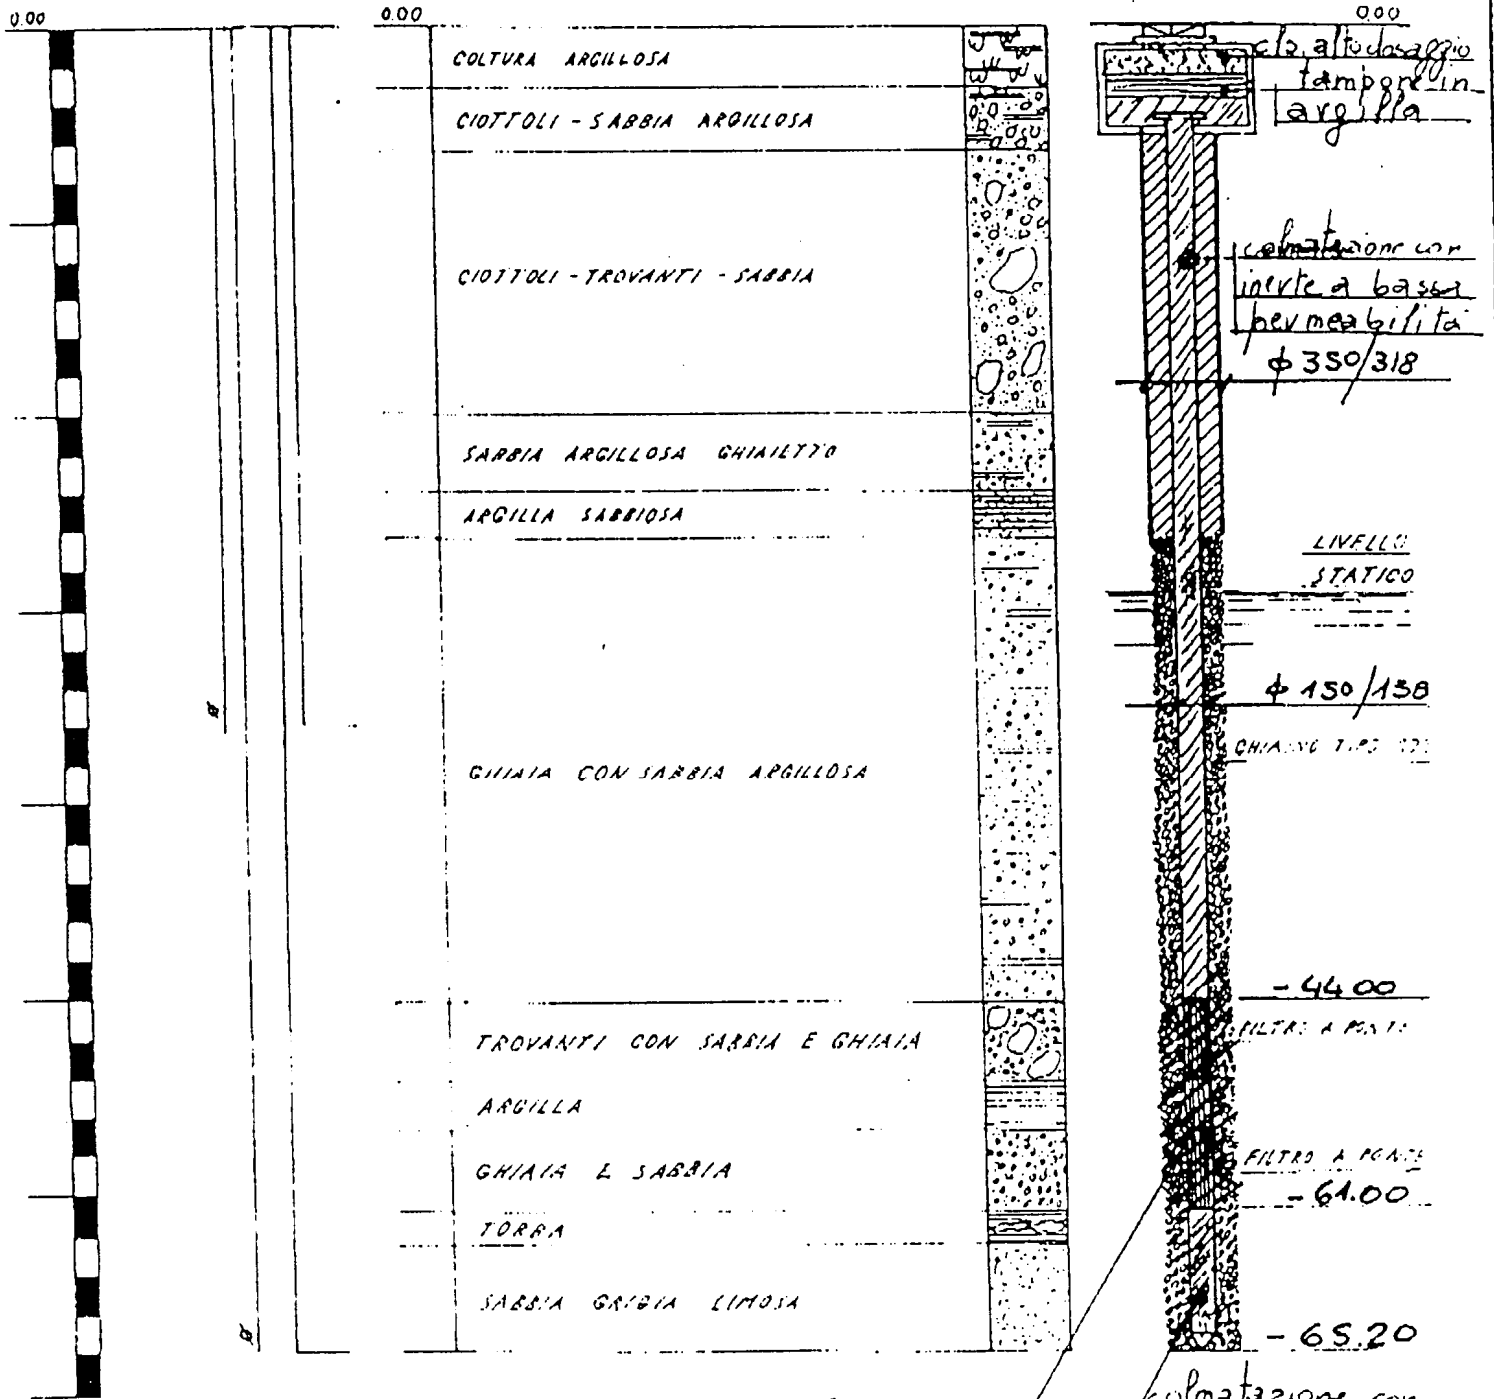 0.00
0.00
0.00
COLTURA ARGILLOSA
CIOTTOLI - SABBIA ARGILLOSA
CIOTTOLI - TROVANTI - SABBIA
SABBIA ARGILLOSA GHIAIETTO
ARGILLA SABBIOSA
GHIAIA CON SABBIA ARGILLOSA
TROVANTI CON SABBIA E GHIAIA
ARGILLA
GHIAIA E SABBIA
TORBA
SABBIA GRIGIA LIMOSA
cls alto dosaggio
tampone in
argilla
colmatazione con
inerte a bassa
permeabilità
ϕ 350/318
LIVELLO
STATICO
ϕ 150/138
TIPO
- 44.00
FILTRO A PONTE
FILTRO A PONTE
- 61.00
- 65.20
colmatazione con